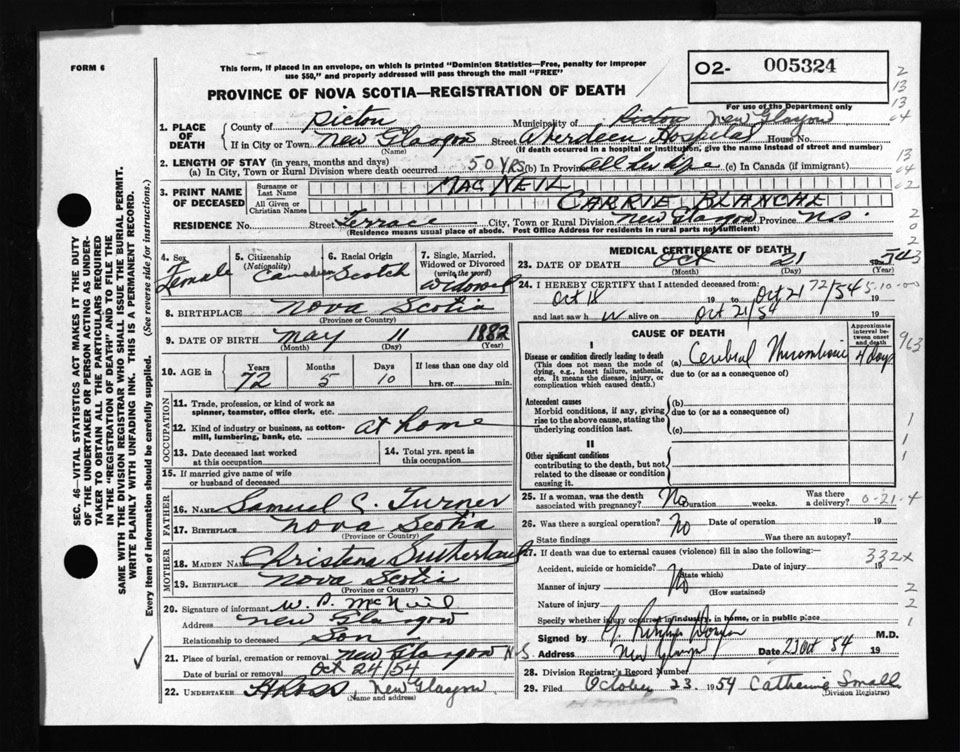 FORM 6
This form, if placed in an envelope, on which is printed "Dominion Statistics—Free, penalty for improper
use $50," and properly addressed will pass through the mail "FREE"
PROVINCE OF NOVA SCOTIA—REGISTRATION OF DEATH
O2- 005324
For use of the Department only
1. PLACE OF DEATH
County of Pictou Municipality of Pictou New Glasgow
If in City or Town New Glasgow Street Aberdeen Hospital House No.
(Name) (If death occurred in a hospital or institution, give the name instead of street and number)
2. LENGTH OF STAY (in years, months and days)
(a) In City, Town or Rural Division where death occurred 50 YRS (b) In Province all her life (c) In Canada (if immigrant)
3. PRINT NAME OF DECEASED
Surname or Last Name MAC NEIL
All Given or Christian Names CARRIE BLANCHE
RESIDENCE No. Street Terrace City, Town or Rural Division New Glasgow Province N.S.
(Residence means usual place of abode. Post Office Address for residents in rural parts not sufficient)
4. Sex Female
5. Citizenship (Nationality) Canadian
6. Racial Origin Scotch
7. Single, Married, Widowed or Divorced (write the word) Widowed
8. BIRTHPLACE Nova Scotia
(Province or Country)
9. DATE OF BIRTH May 11 1882
(Month) (Day) (Year)
10. AGE in Years 72 Months 5 Days 10 If less than one day old hrs. or min.
OCCUPATION
11. Trade, profession, or kind of work as spinner, teamster, office clerk, etc.
12. Kind of industry or business, as cotton-mill, lumbering, bank, etc. at home
13. Date deceased last worked at this occupation
14. Total yrs. spent in this occupation
15. If married give name of wife or husband of deceased
FATHER
16. Name Samuel C. Turner
17. Birthplace Nova Scotia
(Province or Country)
MOTHER
18. Maiden Name Christena Sutherland
19. Birthplace Nova Scotia
(Province or Country)
20. Signature of informant W. D. McNeil
Address New Glasgow
Relationship to deceased Son
21. Place of burial, cremation or removal New Glasgow N.S.
Date of burial or removal Oct 24/54
22. Undertaker H Ross, New Glasgow
(Name and address)
MEDICAL CERTIFICATE OF DEATH
23. DATE OF DEATH Oct 21 54
(Month) (Day) (Year)
24. I HEREBY CERTIFY that I attended deceased from:
Oct 18 19 to Oct 21/54 19
and last saw h alive on Oct 21/54 19
CAUSE OF DEATH
Approximate interval between onset and death
I
Disease or condition directly leading to death
(This does not mean the mode of dying, e.g., heart failure, asthenia, etc. It means the disease, injury, or complication which caused death.)
(a) Cerebral Thrombosis 4 days
due to (or as a consequence of)
Antecedent causes
Morbid conditions, if any, giving rise to the above cause, stating the underlying condition last.
(b)
due to (or as a consequence of)
(c)
II
Other significant conditions
contributing to the death, but not related to the disease or condition causing it.
25. If a woman, was the death associated with pregnancy? No Duration weeks. Was there a delivery?
26. Was there a surgical operation? No Date of operation 19
State findings Was there an autopsy?
27. If death was due to external causes (violence) fill in also the following:—
Accident, suicide or homicide? No Date of injury 19
(State which)
Manner of injury
(How sustained)
Nature of injury
Specify whether injury occurred in industry, in home, or in public place
Signed by M.D.
Address New Glasgow Date 23 Oct 54 19
28. Division Registrar's Record Number
29. Filed October 23, 1954 Catherine Small
(Division Registrar)
72/54 5-10-00
963
0-21-4
332X
SEC. 46—VITAL STATISTICS ACT MAKES IT THE DUTY
OF THE UNDERTAKER OR PERSON ACTING AS UNDER-
TAKER TO OBTAIN ALL THE PARTICULARS REQUIRED
IN THE "REGISTRATION OF DEATH" AND TO FILE THE
SAME WITH THE DIVISION REGISTRAR WHO SHALL ISSUE THE BURIAL PERMIT.
WRITE PLAINLY WITH UNFADING INK. THIS IS A PERMANENT RECORD.
Every item of information should be carefully supplied. (See reverse side for instructions.)